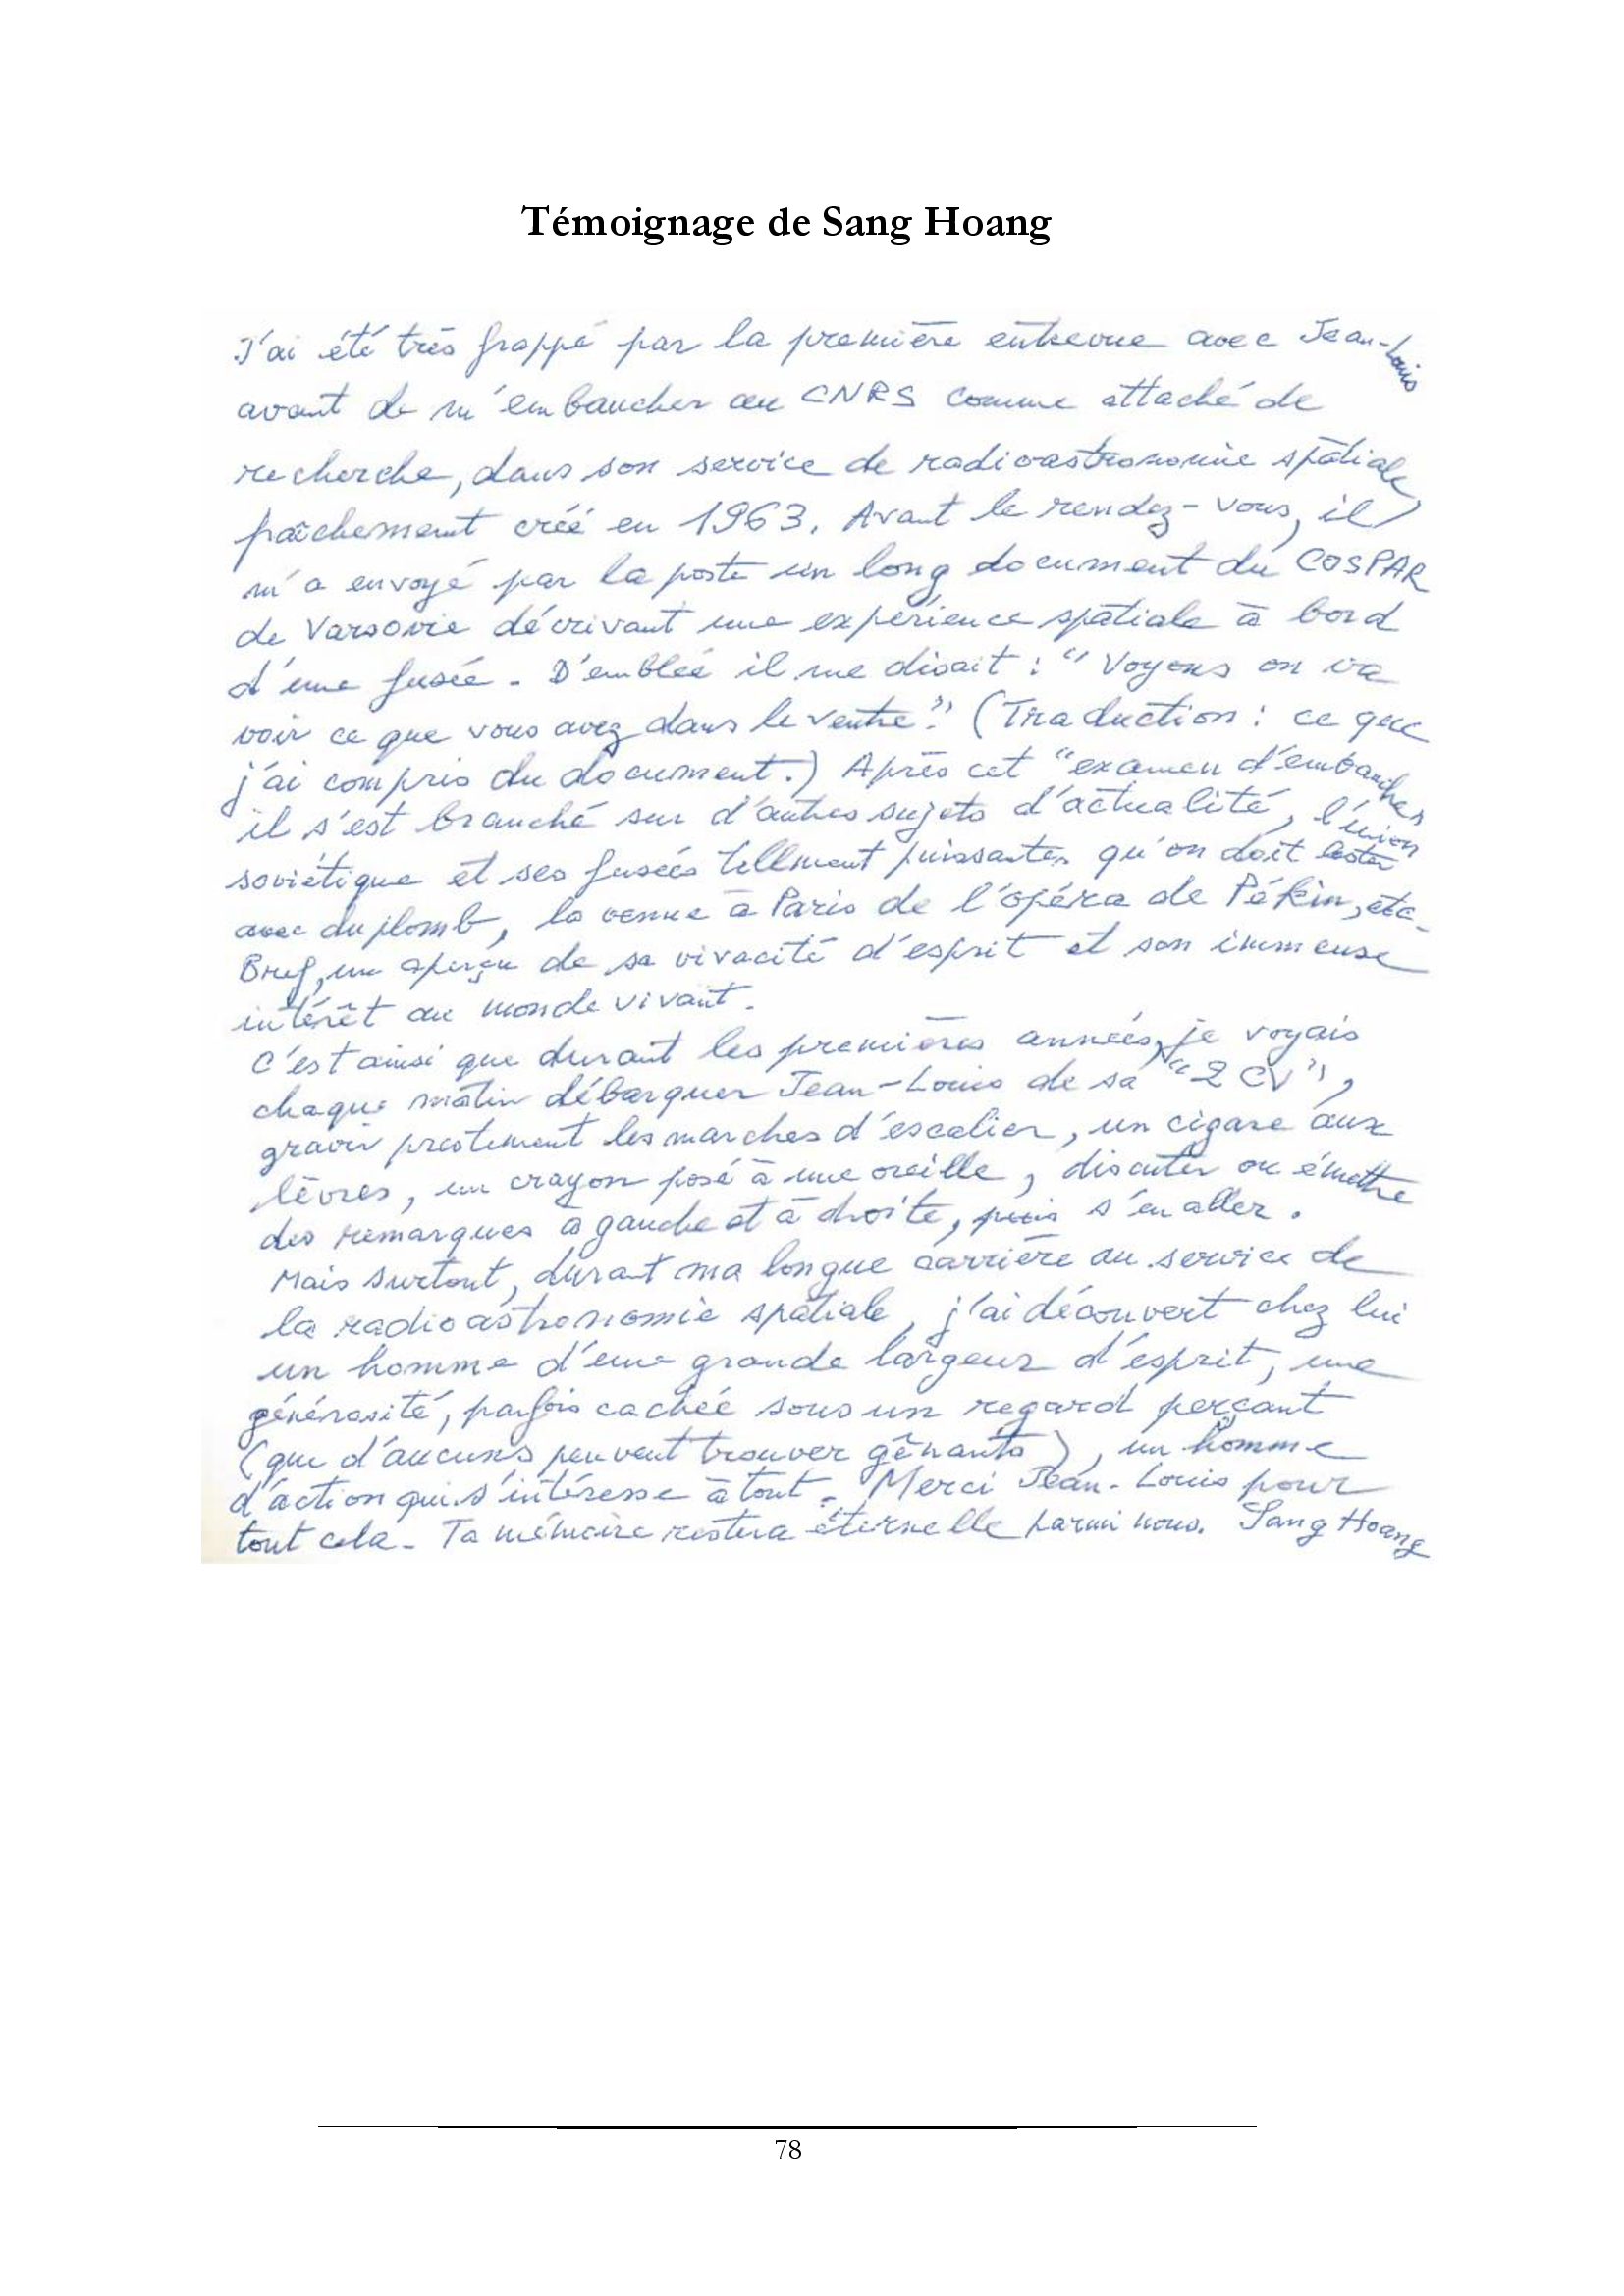 Témoignage de Sang Hoang
J'ai été très frappé par la première entrevue avec Jean-Louis
avant de m'embaucher au CNRS comme attaché de
recherche, dans son service de radioastronomie spatiale
fraîchement créé en 1963. Avant le rendez-vous, il
m'a envoyé par la poste un long document du COSPAR
de Varsovie décrivant une expérience spatiale à bord
d'une fusée. D'emblée il me disait : "Voyons on va
voir ce que vous avez dans le ventre". (Traduction : ce que
j'ai compris du document.) Après cet "examen d'embauche"
il s'est branché sur d'autres sujets d'actualité, l'Union
soviétique et ses fusées tellement puissantes qu'on doit lester
avec du plomb, la venue à Paris de l'opéra de Pékin, etc.
Bref, un aperçu de sa vivacité d'esprit et son immense
intérêt au monde vivant.
C'est ainsi que durant les premières années, je voyais
chaque matin débarquer Jean-Louis de sa "2 CV",
gravir prestement les marches d'escalier, un cigare aux
lèvres, un crayon posé à une oreille, discuter ou émettre
des remarques à gauche et à droite, puis s'en aller.
Mais surtout, durant ma longue carrière au service de
la radioastronomie spatiale, j'ai découvert chez lui
un homme d'une grande largeur d'esprit, une
générosité, parfois cachée sous un regard perçant
(que d'aucuns peuvent trouver gênants), un homme
d'action qui s'intéresse à tout. Merci Jean-Louis pour
tout cela. Ta mémoire restera éternelle parmi nous. Sang Hoang
78